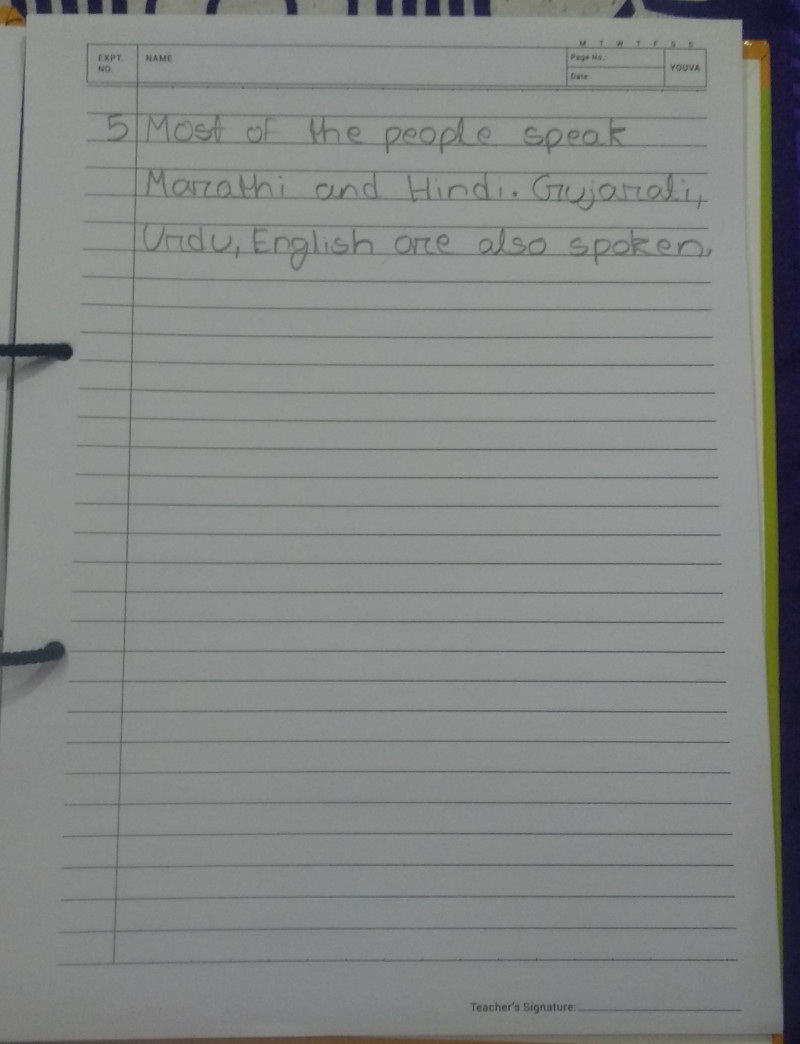 M T W T F S S
EXPT. NO. NAME Page No.: YOUVA
Date:
5 Most of the people speak
Marathi and Hindi. Gujarati,
Urdu, English are also spoken.
Teacher's Signature: